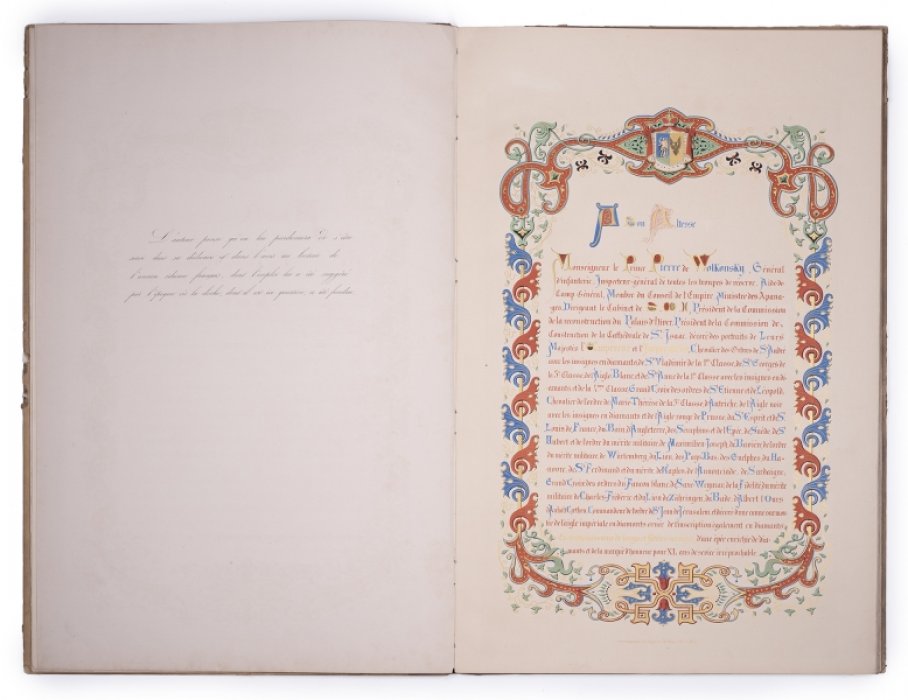 L'auteur pense qu'on lui pardonnera de s'être
servi dans sa dédicace et dans l'avis au lecteur de
l'ancien idiome français, dont l'emploi lui a été suggéré
par l'époque où la cloche, dont il est ici question, a été fondue.
A Son Altesse
Monseigneur le Prince Pierre de Wolkonsky, Général
d'infanterie, Inspecteur-général de toutes les troupes de réserve, Aide-de
Camp Général, Membre du Conseil de l'Empire, Ministre des Apana-
ges, Dirigeant le Cabinet de S. M. I., Président de la Commission
de la reconstruction du Palais d'Hiver, Président de la Commission de
Construction de la Cathédrale de St Isaac, décoré des portraits de Leurs
Majestés l'Empereur et l'Impératrice, Chevalier des Ordres de St André
avec les insignes en diamants, de St Vladimir de la 1re Classe, de St Georges de
la 3e Classe, de l'Aigle Blanc et de St Anne de la 1re Classe avec les insignes en di-
amants et de la Classe, Grand Croix des ordres de St Etienne et de Léopold,
Chevalier de l'ordre de Marie Thérèse de la 3e Classe d'Autriche, de l'Aigle noir
avec les insignes en diamants et de l'Aigle rouge de Prusse, du St Esprit et de St
Louis de France, du Bain d'Angleterre, des Séraphins et de l'Epée, de Suède, de St
Hubert et de l'ordre du mérite militaire, de Maximilien Joseph de Bavière, de l'ordre
du mérite militaire de Würtemberg, du Lion, des Pays-Bas, des Guelphes du Ha-
novre, de St Ferdinand et du mérite de Naples, de l'Annonciade, de Sardaigne,
Grand Croix des ordres du Faucon blanc, de Saxe Weymar, de la Fidélité du mérite
militaire de Charles Fréderic et du Lion de Zähringen, de Bade, d'Albert l'Ours
d'Anhalt Cöthen, Commandeur de l'ordre de St Jean de Jérusalem, et décoré d'une
de l'aigle impériale en diamants ornée de l'inscription également en diamants
d'une épée enrichie de dia-
mants et de la marque d'honneur pour XL ans de service irréprochable.